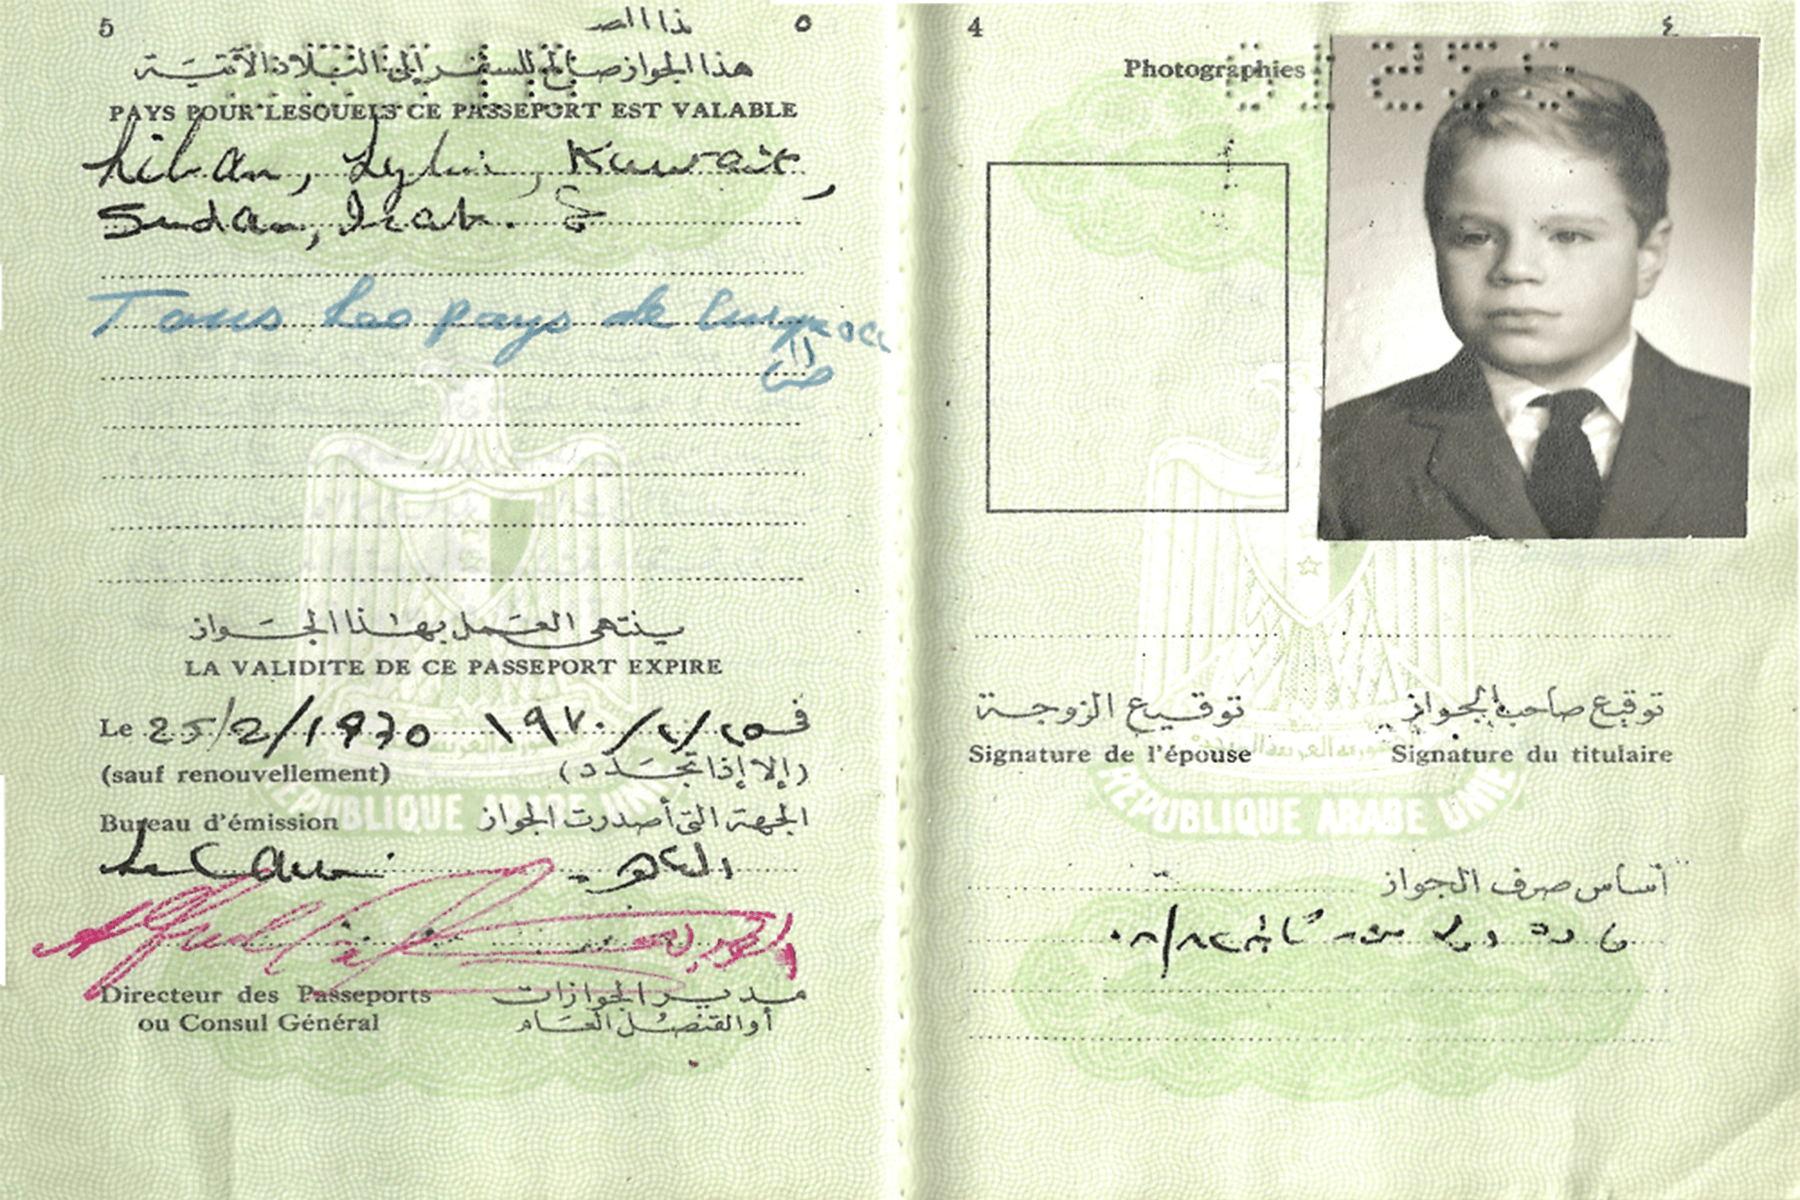 5 ٥
هذا الجواز صالح للسفر إلى البلاد الآتية
PAYS POUR LESQUELS CE PASSEPORT EST VALABLE
Liban, Lybie, Kuwait,
Sudan, Irak.
Tous les pays de
ينتهي العمل بهذا الجواز
LA VALIDITE DE CE PASSEPORT EXPIRE
Le 25/2/1970 في ٢٥/٢/١٩٧٠
(sauf renouvellement) (إلا إذا تجدد)
Bureau d'émission الجهة التي أصدرت الجواز
Le Caire القاهرة
Directeur des Passeports مدير الجوازات
ou Consul Général أو القنصل العام
REPUBLIQUE ARABE UNIE
4 ٤
Photographies
توقيع الزوجة توقيع صاحب الجواز
Signature de l'épouse Signature du titulaire
REPUBLIQUE ARABE UNIE
أساس صرف الجواز